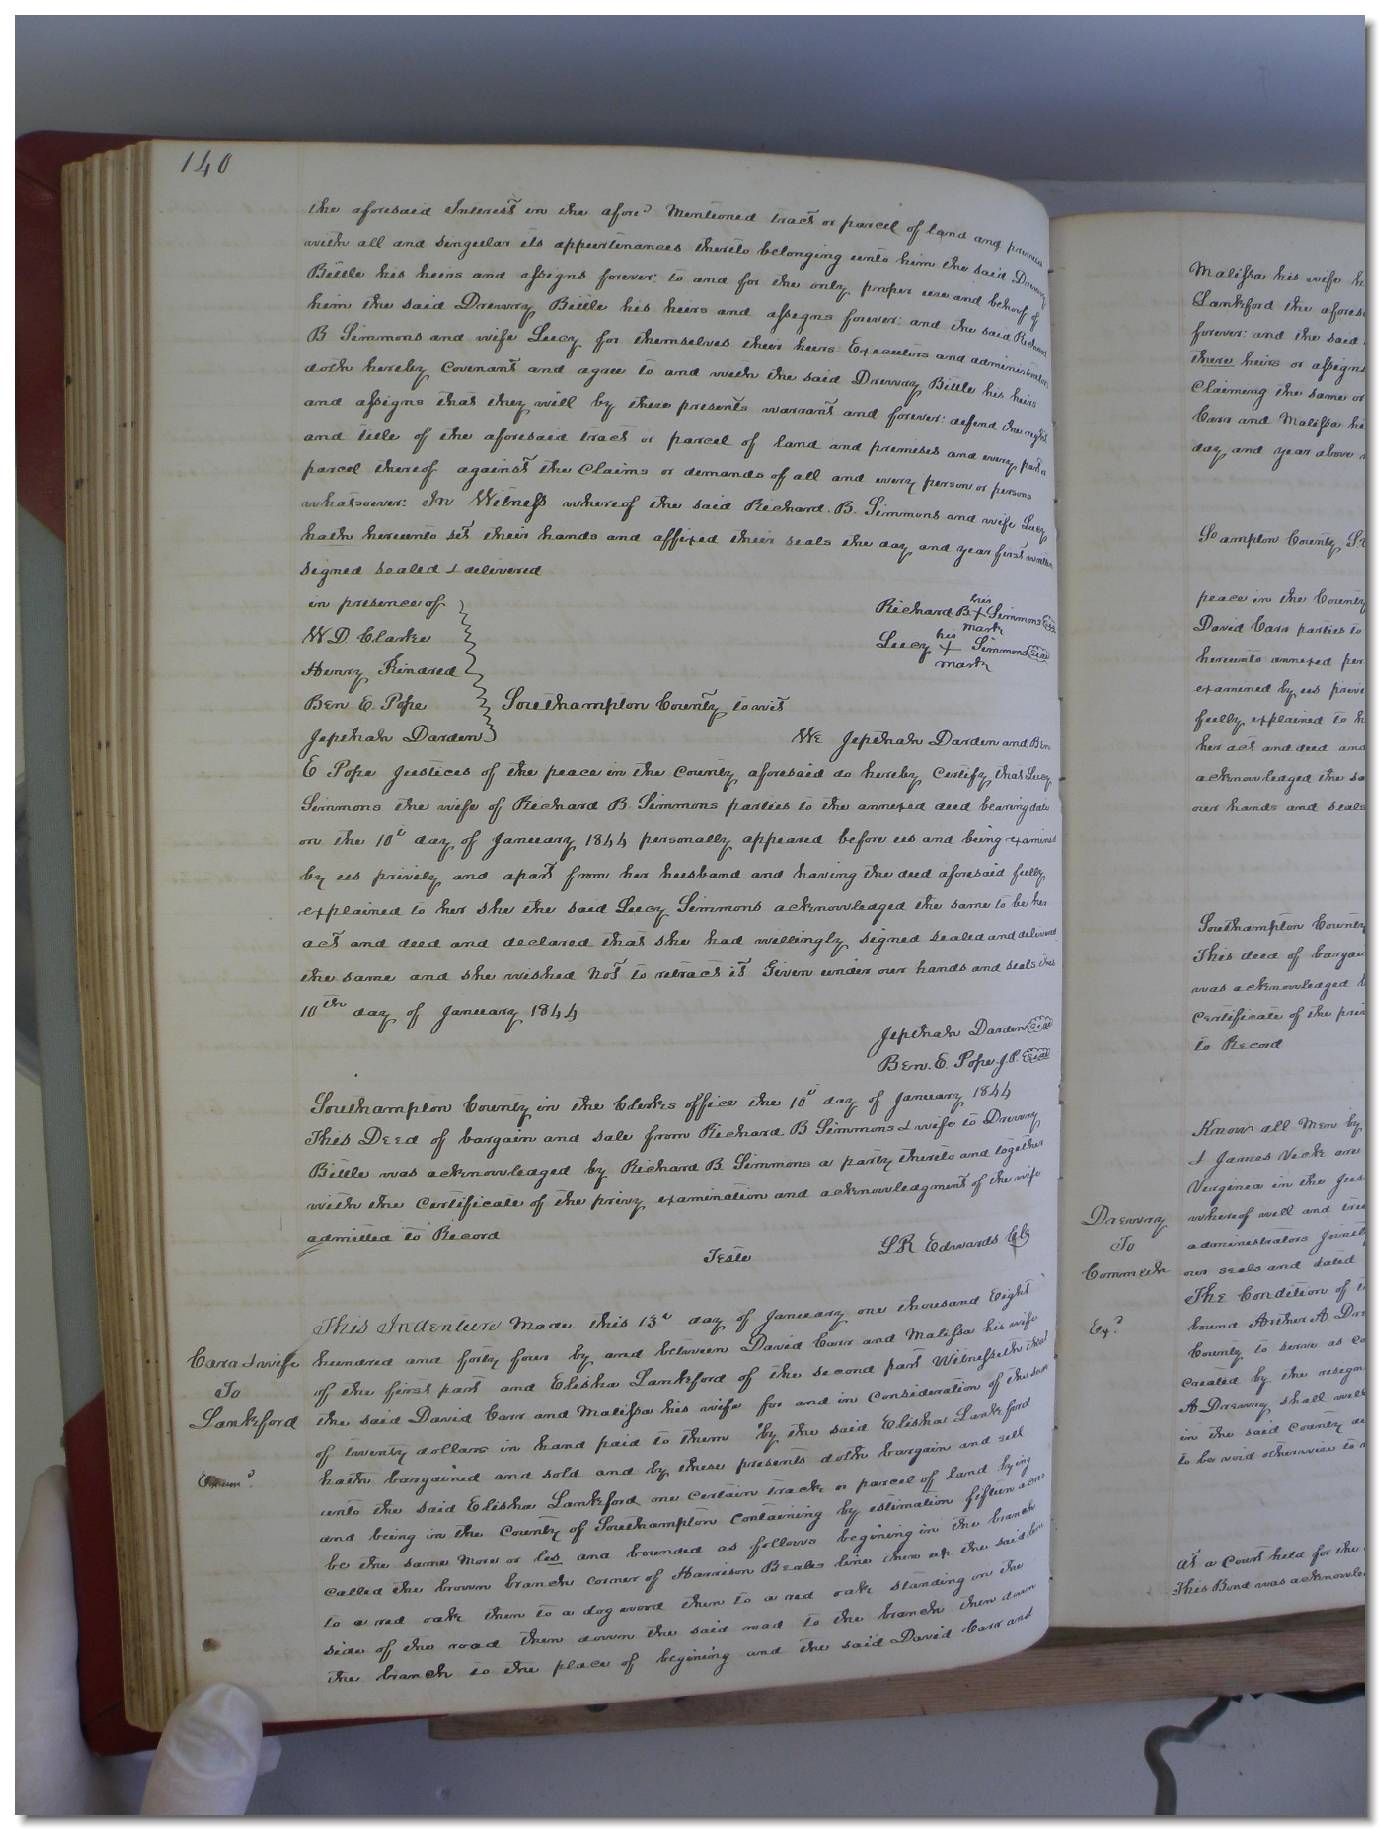 140
the aforesaid Interest in the afore<sup>d</sup> Mentioned tract or parcel of land and premises
with all and singular its appurtinances thereto belonging unto him the said Drewry
Bittle his heirs and assigns forever: to and for the only proper use and behoof of
him the said Drewry Bittle his heirs and assigns forever: and the said Richard
B Simmons and wife Lucy for themselves their heirs Executors and administrators
doth hereby Covenant and agree to and with the said Drewry Bittle his heirs
and assigns that they will by these presents warrant and forever: defend the right
and title of the aforesaid tract or parcel of land and premises and every part &
parcel thereof against the Claims or demands of all and every person or persons
whatsoever: In Witness whereof the said Richard. B. Simmons and wife Lucy
hath hereunto set their hands and affixed their seals the day and year first written
signed sealed & delivered
in presence of
W D Clarke
Henry Kindred
Ben E. Pope
Jepthah Darden
Richard B his + mark Simmons Seal
Lucy his + mark Simmons Seal
Southampton County to wit
We Jepthah Darden and Ben
E Pope Justices of the peace in the County aforesaid do hereby Certify that Lucy
Simmons the wife of Richard B. Simmons parties to the annexed deed bearing date
on the 10<sup>th</sup> day of January 1844 personally appeared before us and being examined
by us privily and apart from her husband and having the deed aforesaid fully
explained to her she the said Lucy Simmons acknowledged the same to be her
act and deed and declared that she had willingly signed sealed and delivered
the same and she wished not to retract it Given under our hands and seals this
10<sup>th</sup> day of January 1844
Jepthah Darden Seal
Ben. E. Pope. J.P. Seal
Southampton County in the Clerks office the 10<sup>th</sup> day of January 1844
This Deed of bargain and sale from Richard B Simmons & wife to Drewry
Bittle was acknowledged by Richard B. Simmons a party thereto and together
with the Certificate of the privy examination and acknowledgment of the wife
admitted to Record
Teste L R Edwards Clk
Carr & wife
To
Lankford
Exam<sup>d</sup>.
This Indenture Made this 13<sup>th</sup> day of January one thousand Eight
hundred and forty four by and between David Carr and Malissa his wife
of the first part and Elisha Lankford of the second part Witnesseth that
the said David Carr and Malissa his wife for and in Consideration of the sum
of twenty dollars in hand paid to them by the said Elisha Lankford
hath bargained and sold and by these presents doth bargain and sell
unto the said Elisha Lankford one certain track or parcel of land lying
and being in the County of Southampton Containing by estimation fifteen acres
be the same More or les and bounded as follows begining in the branch
called the brown branch corner of Harrison Beales line then up the said line
to a red oake then to a dog wood then to a red oake standing on the
side of the road then down the said road to the branch then down
the branch to the place of begining and the said David Carr and
Malissa his wife
Lankford the afores
forever: and the said
there heirs or assigns
Claiming the same or
Carr and Malissa his
day and year above
So ampton County
peace in the County
David Carr parties to
hereunto annexed per
examined by us priv
fully explained to h
her act and deed and
acknowledged the sa
our hands and seals
Southampton County
This deed of bargai
was acknowledged
Certificate of the pri
to Record
Drewry
To
Commwth
Ex<sup>d</sup>
Know all Men by
& James Vick are
Virginia in the jus
whereof well and tru
administrators jointl
our seals and dated
The Condition of t
bound Arther A Dre
County to serve as Co
created by the resign
A Drewry shall well
in the said County
to be void otherwise to
At a Court held for the
This Bond was acknowle